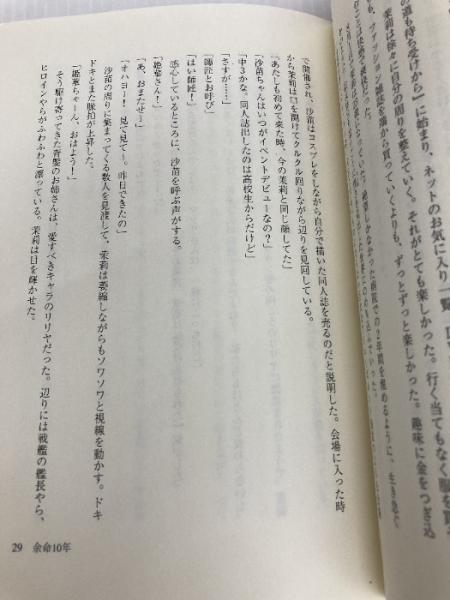 の道も待ち受けから」に始まり、ネットのお気に入り一覧、
茉莉は徐々に自分の周りを整えていく。それがとても楽しかった。行く当てもなく服を買
ファッション雑誌を端から買っていくよりも、ずっとずっと楽しかった。趣味に金をつぎ込
病院での2年間を埋めるように、生き急ぐ
で開催され、沙苗はコスプレをしながら自分で描いた同人誌を売るのだと説明した。会場に入った時
から茉莉は口を開けてクルクル回りながら辺りを見回している。
「あたしも初めて来た時、今の茉莉と同じ顔してた」
「沙苗ちゃんはいつがイベントデビューなの?」
「中3かな。同人誌出したのは高校生からだけど」
「さすが……」
「師匠とお呼び」
「はい師匠!」
感心しているところに、沙苗を呼ぶ声がする。
「姫華さん!」
「あ、おまたせー」
「オハヨー! 見て見てー。昨日できたの」
沙苗の周りに集まってくる数人を見渡して、茉莉は萎縮しながらもソワソワと視線を動かす。ドキ
ドキとまた脈拍が上昇した。
「姫華ちゃーん、おはよう!」
そう駆け寄ってきた青髪のお姉さんは、愛すべきキャラのリリヤだった。辺りには戦艦の艦長やら、
ヒロインやらがふわふわと漂っている。茉莉は目を輝かせた。
29 余命10年